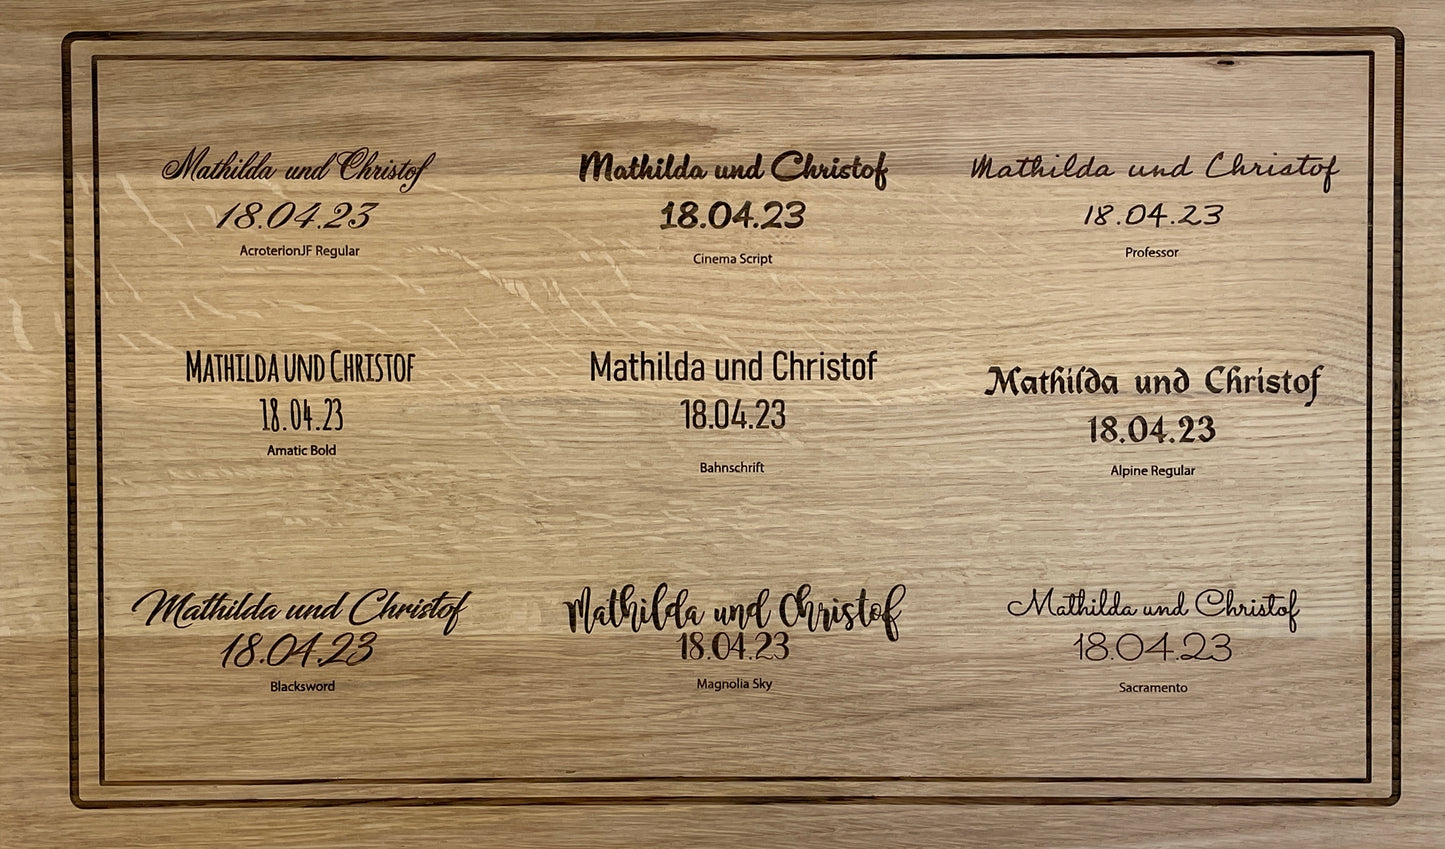 Mathilda und Christof
18.04.23
AcroterionJF Regular
Mathilda und Christof
18.04.23
Cinema Script
Mathilda und Christof
18.04.23
Professor
MATHILDA UND CHRISTOF
18.04.23
Amatic Bold
Mathilda und Christof
18.04.23
Bahnschrift
Mathilda und Christof
18.04.23
Alpine Regular
Mathilda und Christof
18.04.23
Blacksword
Mathilda und Christof
18.04.23
Magnolia Sky
Mathilda und Christof
18.04.23
Sacramento